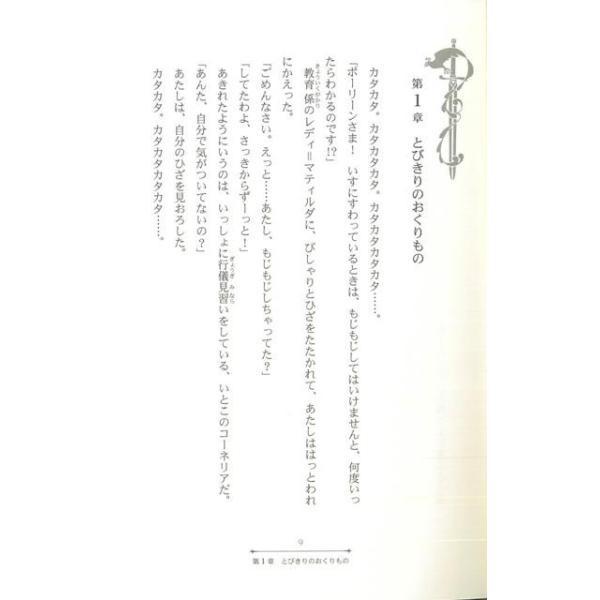 第1章　とびきりのおくりもの
カタカタ。カタカタカタ。カタカタカタカタ……。
「ポーリーンさま！　いすにすわっているときは、もじもじしてはいけませんと、何度いっ
たらわかるのです!?」
教育係のレディ＝マティルダに、ぴしゃりとひざをたたかれて、あたしははっとわれ
きょういくがかり
にかえった。
「ごめんなさい。えっと……あたし、もじもじしちゃってた？」
「してたわよ、さっきからずーっと！」
あきれたようにいうのは、いっしょに行儀見習いをしている、いとこのコーネリアだ。
ぎょうぎみなら
「あんた、自分で気がついてないの？」
あたしは、自分のひざを見おろした。
カタカタ。カタカタカタカタ……。
9
第1章　とびきりのおくりもの